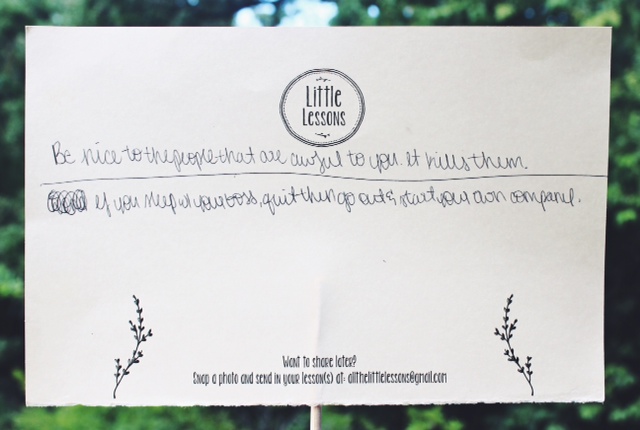 Little
Lessons
Be nice to the people that are awful to you. It kills them.
If you sleep w your boss, quit then go out & start your own company.
Want to share later?
Snap a photo and send in your lesson(s) at: allthelittlelessons@gmail.com